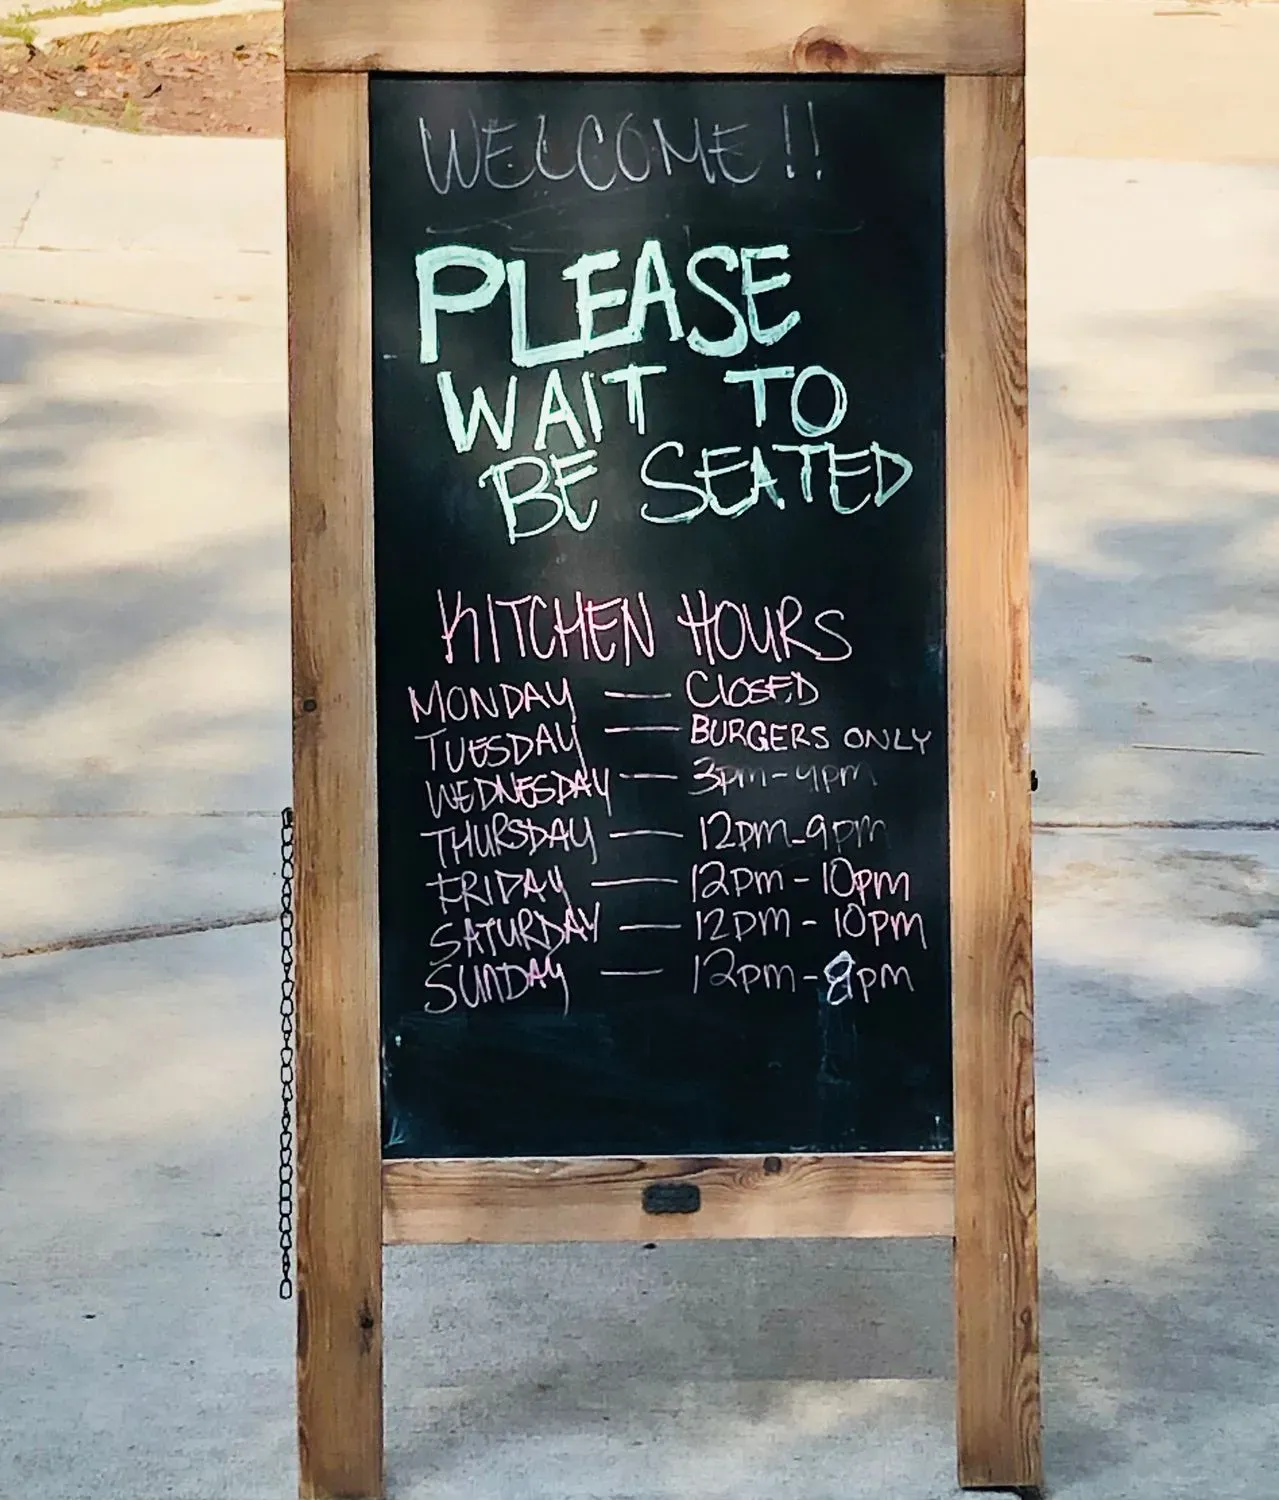 WELCOME!!
PLEASE
WAIT TO
BE SEATED
KITCHEN HOURS
MONDAY — CLOSED
TUESDAY — BURGERS ONLY
WEDNESDAY — 3pm-9pm
THURSDAY — 12pm-9pm
FRIDAY — 12pm-10pm
SATURDAY — 12pm-10pm
SUNDAY — 12pm-8pm